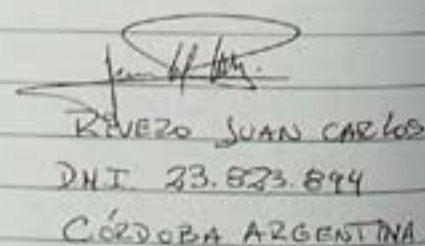 RIVEZO JUAN CARLOS
DNI 23.823.894
CÓRDOBA ARGENTINA